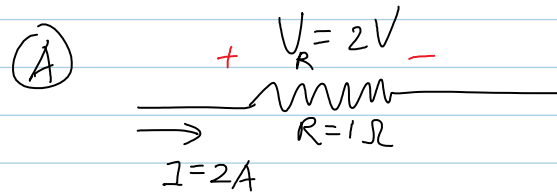 A
V_R = 2V
+ −
R = 1 Ω
I = 2A